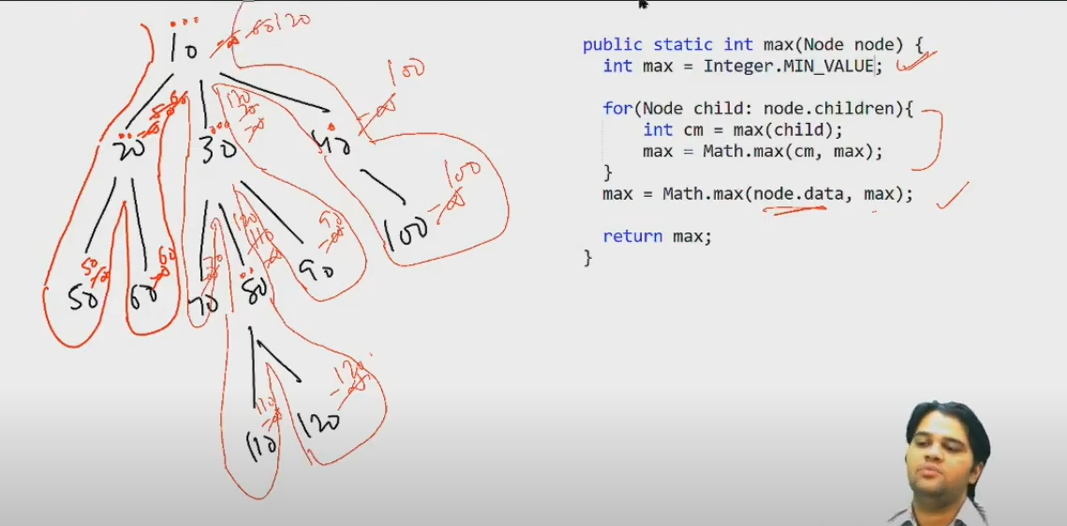 10
-∞ 60 120
20
-∞ 50 60
30
-∞ 70 120
40
-∞ 100
50
-∞ 50
60
-∞ 60
70
-∞ 70
80
-∞ 110 120
90
-∞ 90
100
-∞ 100
110
-∞ 110
120
-∞ 120
public static int max(Node node) {
int max = Integer.MIN_VALUE;
for(Node child: node.children){
int cm = max(child);
max = Math.max(cm, max);
}
max = Math.max(node.data, max);
return max;
}